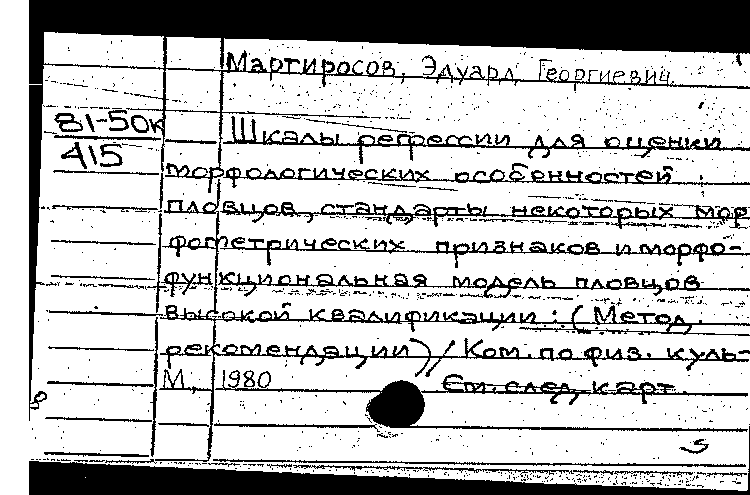 Мартиросов, Эдуард Георгиевич.
81-50к
415
Шкалы регрессии для оценки
морфологических особенностей
пловцов, стандарты некоторых мор
фометрических признаков и морфо-
функциональная модель пловцов
высокой квалификации: (Метод.
рекомендации) / Ком. по физ. куль-
М., 1980 См. след. карт.